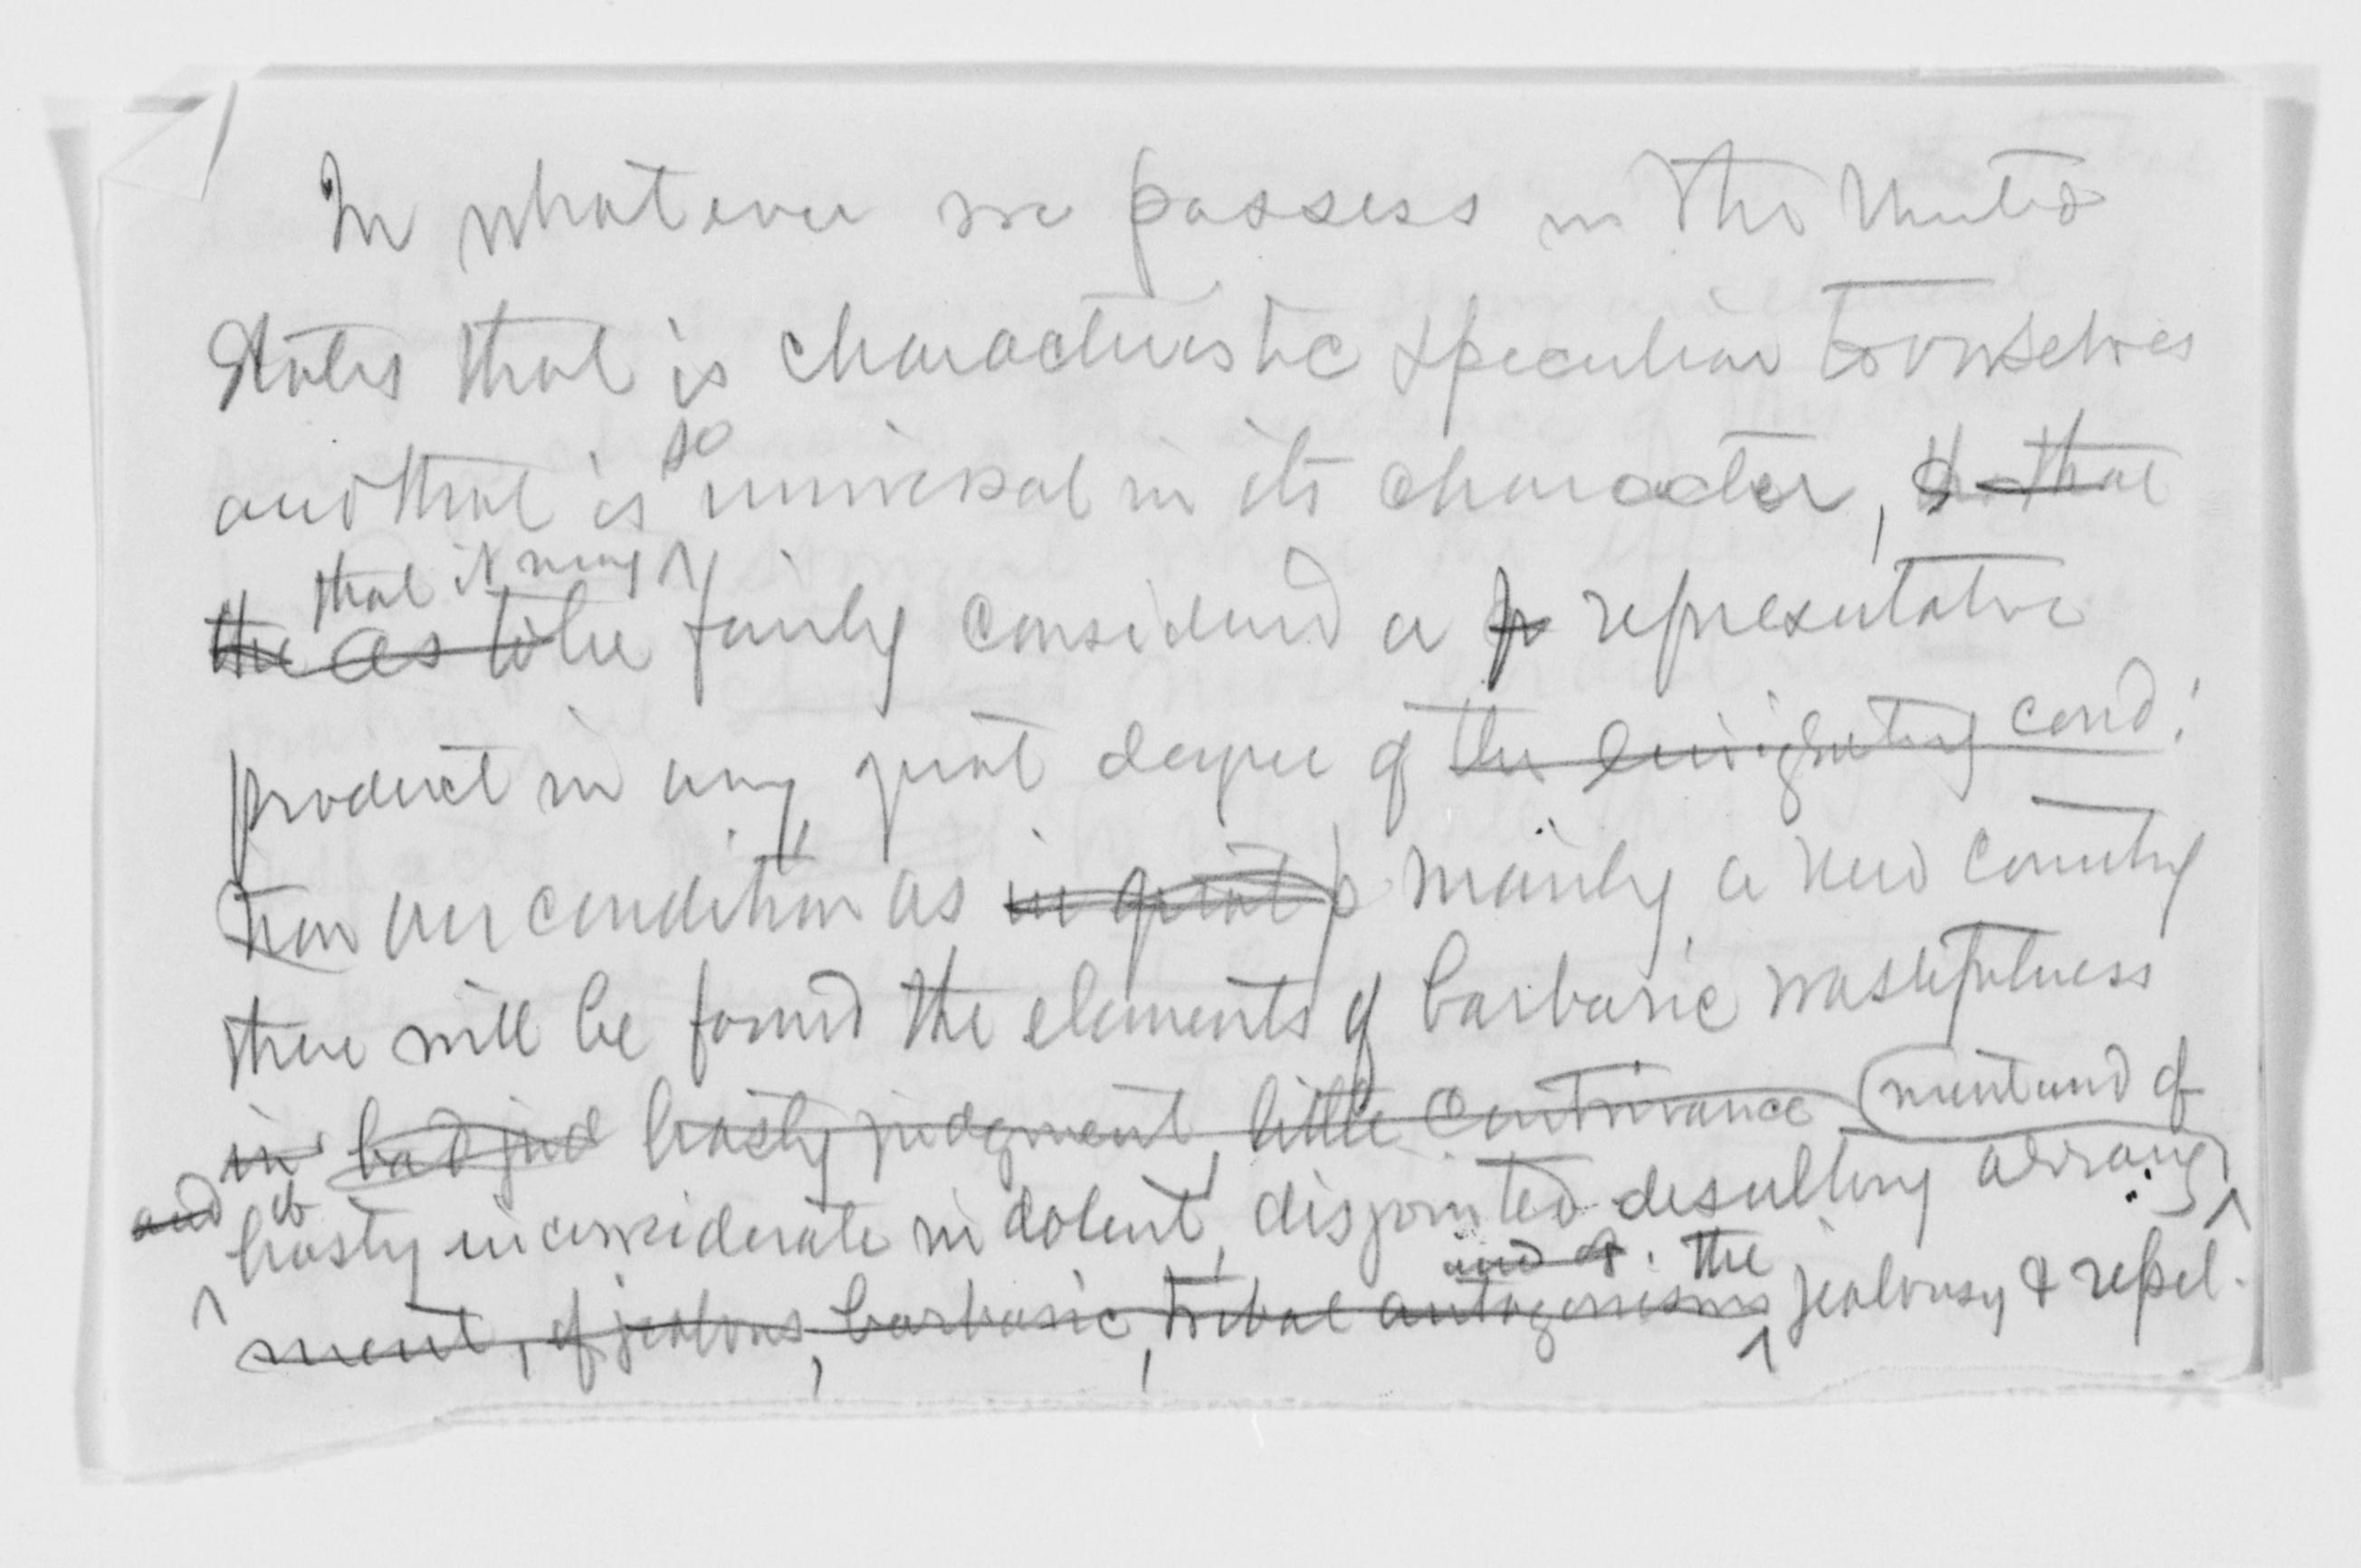 In whatever we possess in the United
States that is characteristic & peculiar to ourselves
so
and that is universal in its character, & that
that it may
the as to be fairly considered a pr representative
product in any great degree of the emigrating condi
tion our condition as in great p mainly a new country
there will be found the elements of barbaric wastefulness
in bad jud hasty judgment, little contrivance ment and of
and
hasty inconsiderate indolent, disjointed desultory arrange
and of the
ment, of jealous, barbaric, tribal antagonisms jealousy & repel-